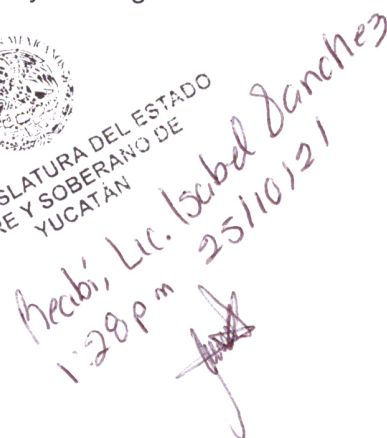 SLATURA DEL ESTADO
RE Y SOBERANO DE
YUCATÁN
Recibí, Lic. Isabel Sanchez
1:28 pm 25/10/21